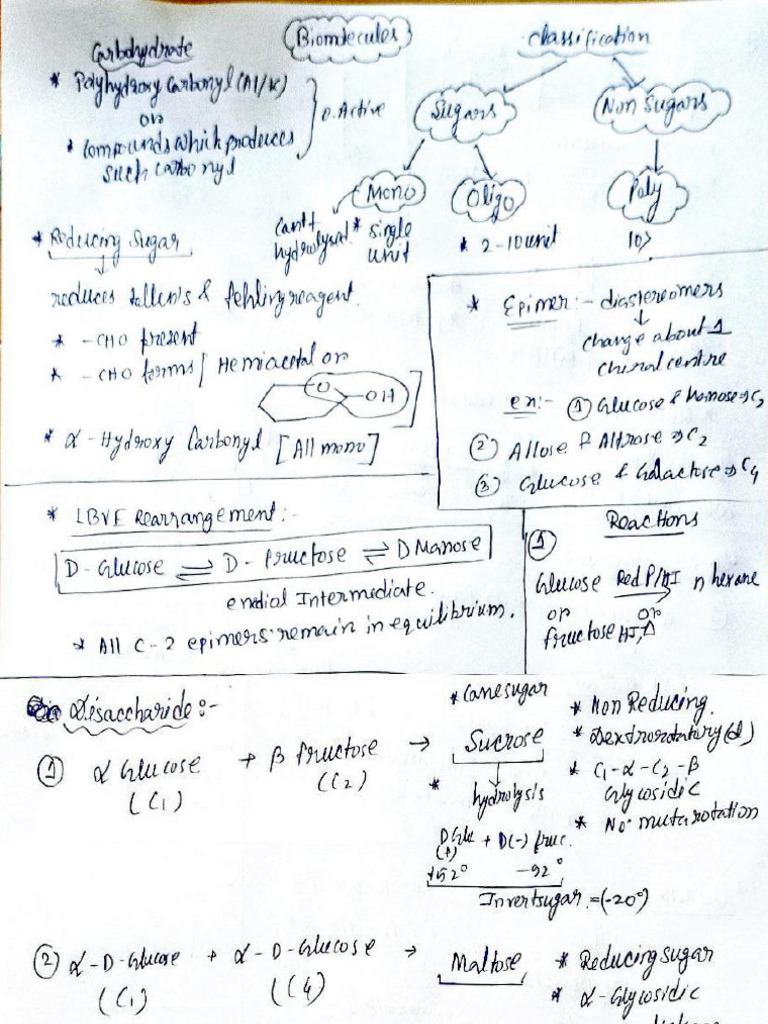 Biomolecules
Carbohydrate
* Polyhydroxy Carbonyl (Al/K)
or
* Compounds which produces
such carbonyl
O. Active
Classification
Sugars
Non Sugars
Mono
Oligo
Poly
Can't
hydrolysed
* Single
unit
* 2-10 unit
10>
* Reducing Sugar
reduces tollen's & fehling reagent.
* -CHO present
* -CHO forms / Hemiacetal or
O
-OH
* α-Hydroxy Carbonyl [All mono]
* Epimer:- diastereomers
change about 1
chiral centre
ex:- ① Glucose & Manose → C2
② Allose & Altrose → C2
③ Glucose & Galactose → C4
* LBVE Rearrangement:-
D-Glucose ⇌ D-fructose ⇌ D Manose
endial Intermediate.
* All C-2 epimers remain in equilibrium.
Reactions
①
Glucose Red P/HI n hexane
or or
fructose HI, Δ
Disaccharide:-
① α Glucose + β fructose → Sucrose
(C1) (C2)
* Canesugar
* hydrolysis
D Glu + D(-) fruc.
(+)
+52° -92°
Invertsugar = (-20°)
* Non Reducing.
* Dextrorotatary (d)
* C1-α-C2-β
Glycosidic
* No mutarotation
② α-D-Glucose + α-D-Glucose → Maltose
(C1) (C4)
* Reducing sugar
* α-Glycosidic